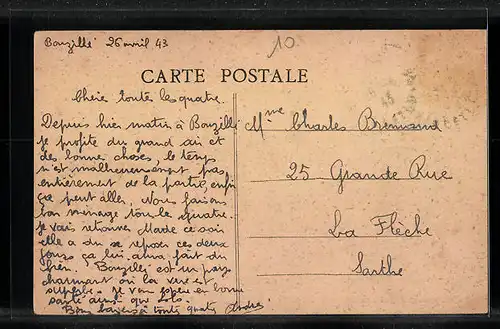 Bouzillé 26 avril 43
10
CARTE POSTALE
Chère toutes les quatre.
Depuis hier matin à Bouzillé
je profite du grand air et
des bonne choses, le temps
n'est malheureusement pas
entièrement de la partie, enfin
ça peut aller. Nous faisons
bon ménage tous le quatre.
je vais retrouver Made ce soir
elle a du se reposer ces deux
jours ça lui aura fait du
bien. Bouzillé est un pays
charmant où la vue est
superbe. Je vous espère en bonne
santé ainsi que
Bons baisers à toute quatre André
Mme Charles Bremand
25 Grande Rue
La Flèche
Sarthe